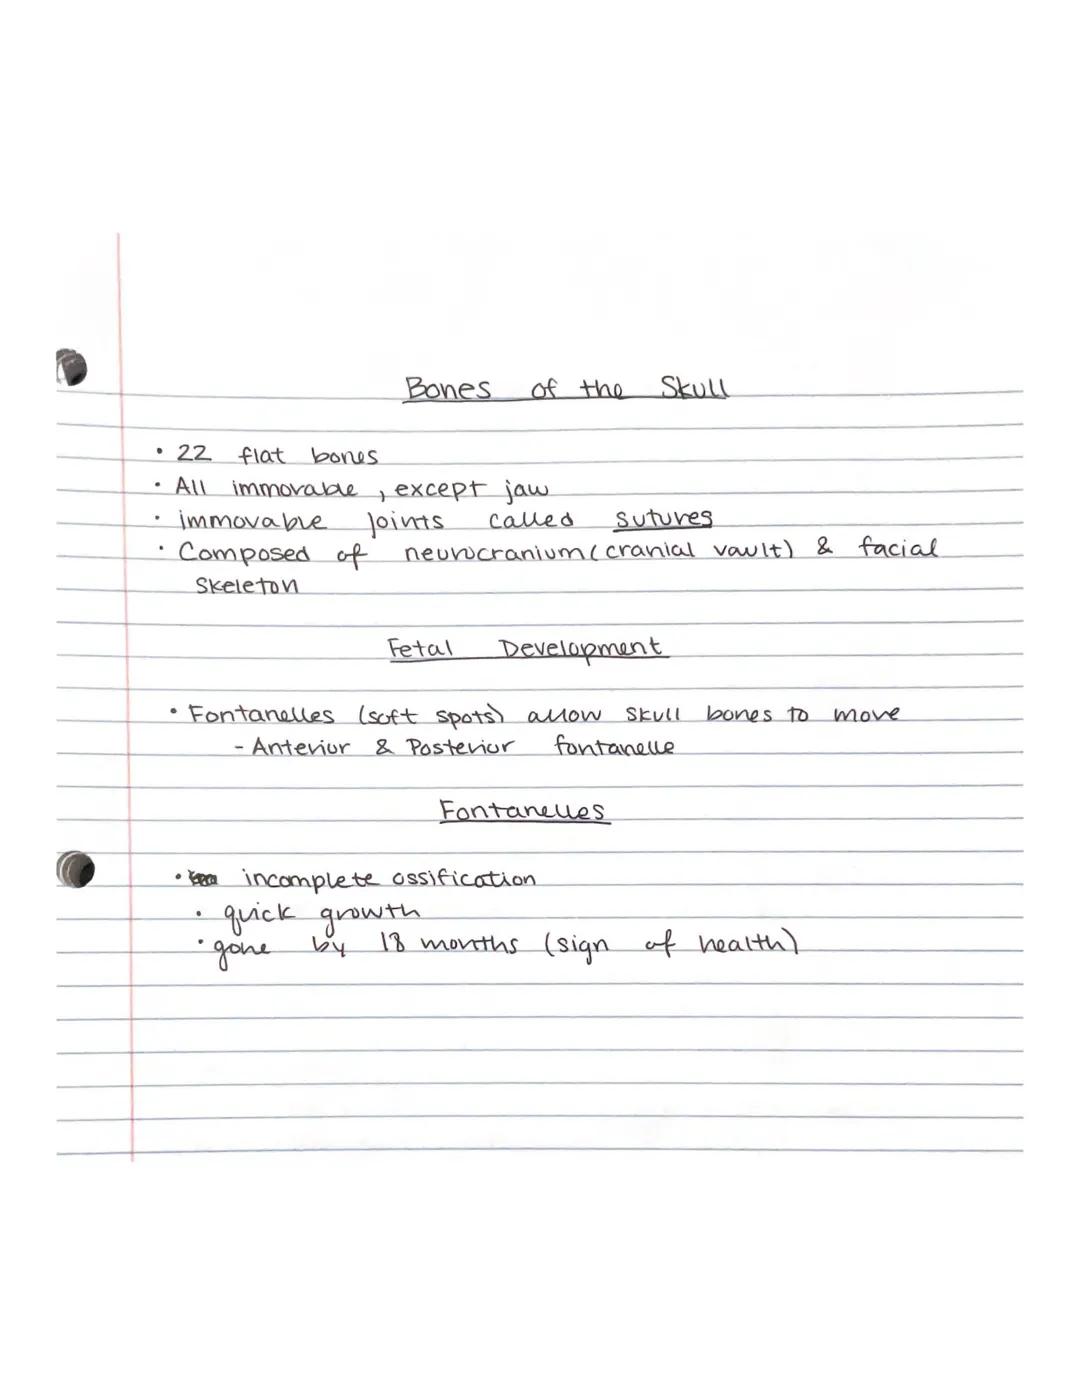 Bones of the Skull
• 22 flat bones
• All immovable, except jaw
• immovable joints called sutures
• Composed of neurocranium (cranial vault) & facial
skeleton
Fetal Development
• Fontanelles (soft spots) allow skull bones to move
- Anterior & Posterior fontanelle
Fontanelles
• incomplete ossification
• quick growth
• gone by 18 months (sign of health)